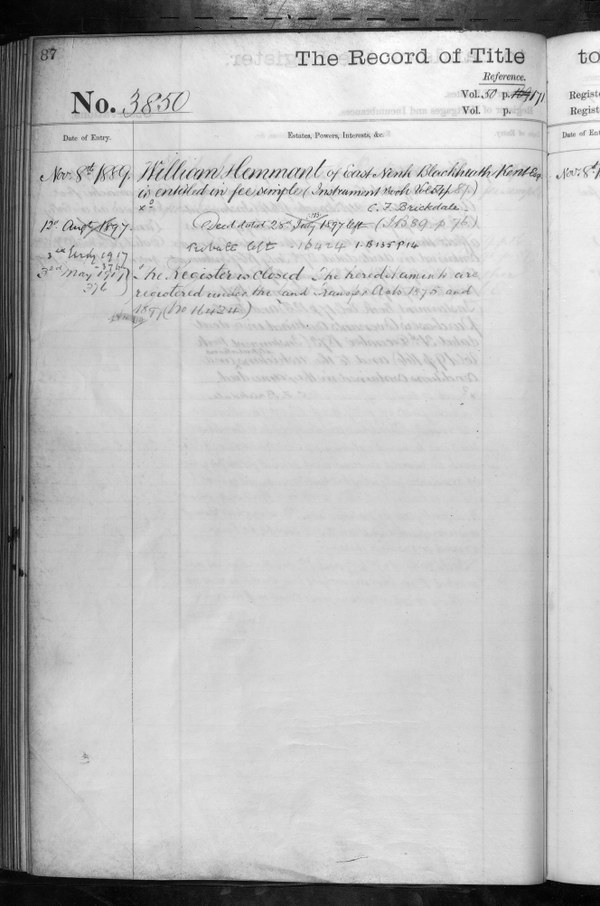 87
The Record of Title
to
Reference.
No. 3850
Vol. 50 p. 171
Vol. p.
Registe
Registe
Date of Entry.
Estates, Powers, Interests, &c.
Date of Ent
Nov: 8th 1889.
William Hemmant of East Blackheath Kent Esq
Nov: 8th 1
is entitled in fee simple (Instrument book Vol 54 p 89)
C. F. Brickdale
12 Augt 1897.
Deed dated 28th July 1897 left (I B 89 p 76)
Probate left 16424 I. B 135 P 14
3rd May 1917
376
The register is closed The hereditaments are
registered under the Land Transfer Acts 1875 and
1897 (No 16424)